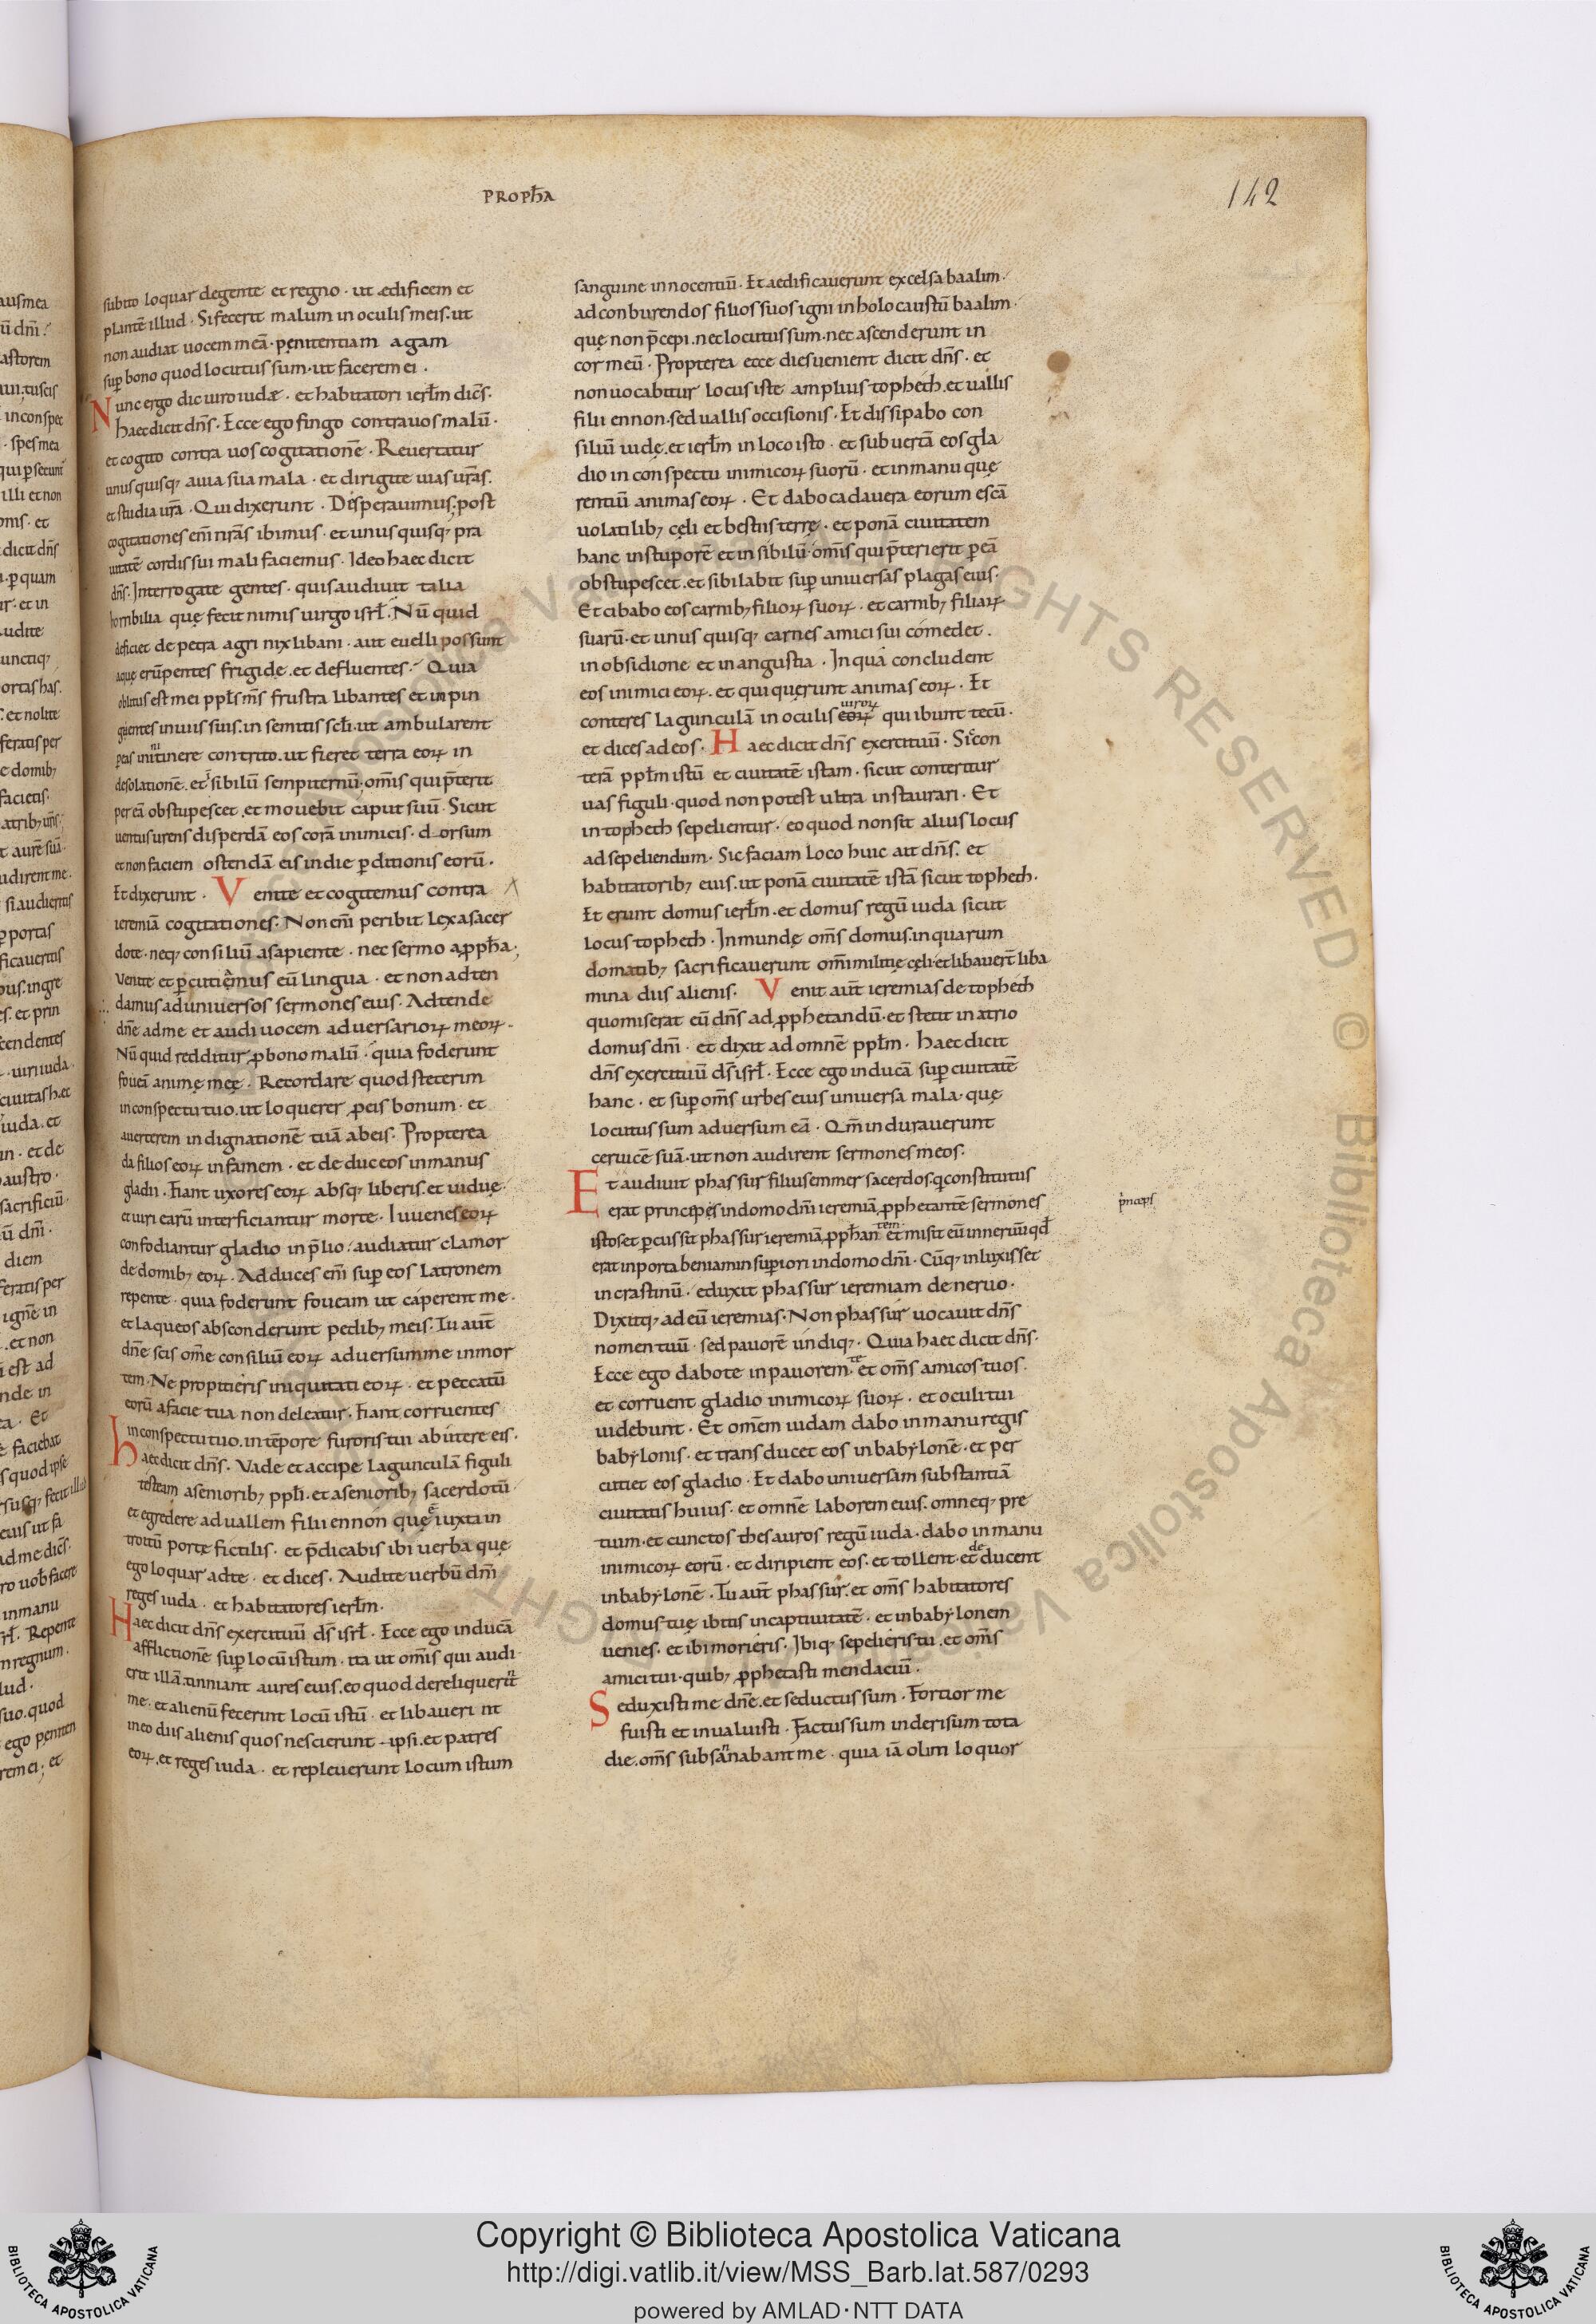 PROPHA
142
subito loquar degente et regno · ut aedificem et
plantē illud · Si fecerit malum in oculis meis. ut
non audiat uocem meā · penitentiam agam
sup bono quod locutus sum. ut facerem ei ·
Nunc ergo dic uiro iudæ · et habitatori ierłm dicēs.
haec dicit dn̄s · Ecce ego fingo contra uos malū ·
et cogito contra uos cogitationē · Reuertatur
unusquisq; a uia sua mala · et dirigite uias urās.
et studia urā · Qui dixerunt · Disperauimus. post
cogitationes em̄ nr̄as ibimus · et unusquisq; pra
uitatē cordis sui mali faciemus · Ideo haec dicit
dn̄s. Interrogate gentes · quis audiuit talia
horribilia quę fecit nimis uirgo isrł. Nū quid
deficiet de petra agri nix libani · aut euelli possunt
aquę erūpentes frigidę. et defluentes. Quia
oblitus est mei ppłs m̄s frustra libantes et inpin
guentes in uiis suis. in semitis scłi. ut ambularent
peas in itinere non trito. ut fieret terra eoꝝ in
desolationē. et sibilū sempiternū. om̄is qui p̄terit
per eā obstupescet. et mouebit caput suū · Sicut
uentus urens disperdā eos corā inimicis · dorsum
et non faciem ostendā eis in die p̱ditionis eorū ·
Et dixerunt · Venite et cogitemus contra
ieremiā cogitationes. Non em̄ peribit lex a sacer
dote. neq; consiliū a sapiente · nec sermo a ꝓpħa;
Venite et p̱cutiemus eū lingua · et non adten
damus ad uniuersos sermones eius · Adtende
dn̄e ad me et audi uocem aduersarioꝝ meoꝝ ·
Nū quid redditur ꝓ bono malū · quia foderunt
foueā animę meę · Recordare quod steterim
in conspectu tuo. ut loquerer ꝓ eis bonum · et
auerterem indignationē tuā ab eis. Propterea
da filios eoꝝ in famem · et deduc eos in manus
gladii · Fiant uxores eoꝝ absq; liberis. et uiduę ·
et uiri earū interficiantur morte · Iuuenes eoꝝ
confodiantur gladio in p̄lio. audiatur clamor
de domib; eoꝝ · Adduces em̄ sup eos latronem
repente · quia foderunt foueam ut caperent me ·
et laqueos absconderunt pedib; meis · Tu aūt
dn̄e scis om̄e consiliū eoꝝ aduersum me in mor
tem · Ne propitieris iniquitati eoꝝ · et peccatū
eorū a facie tua non deleatur · Fiant corruentes
in conspectu tuo. in tēpore furoris tui abutere eis ·
haec dicit dn̄s · Vade et accipe lagunculā figuli
testeam a seniorib; ppłi. et a seniorib; sacerdotū ·
et egredere ad uallem filii ennon quę ē iuxta in
troitū portę fictilis · et p̄dicabis ibi uerba quę
ego loquar ad te · et dices · Audite uerbū dn̄i
reges iuda · et habitatores ierłm.
Haec dicit dn̄s exercituū ds̄ isrł · Ecce ego inducā
afflictionē sup locū istum · ita ut om̄is qui audi
erit illā. tinniant aures eius. eo quod dereliquert̄
me · et alienū fecerint locū istū · et libauerint
in eo diis alienis quos nescierunt · ipsi. et patres
eoꝝ. et reges iuda · et repleuerunt locum istum
sanguine innocentiū · Et aedificauerunt excelsa baalim ·
ad conburendos filios suos igni in holocaustū baalim ·
quę non p̄cepi. nec locutus sum. nec ascenderunt in
cor meū · Propterea ecce dies uenient dicit dn̄s · et
non uocabitur locus iste amplius topheth. et uallis
filii ennon. sed uallis occisionis · Et dissipabo con
siliū iudę. et ierłm in loco isto · et subuertā eos gla
dio in conspectu inimicoꝝ suorū · et in manu quę
rentiū animas eoꝝ · Et dabo cadauera eorum escā
uolatilib; cęli et bestiis terrę · et ponā ciuitatem
hanc in stuporē et in sibilū. om̄is qui p̄terierit p̱ eā
obstupescet. et sibilabit sup uniuersas plagas eius ·
Et cibabo eos carnib; filioꝝ suoꝝ · et carnib; filiaꝝ
suarū. et unusquisq; carnes amici sui comedet ·
in obsidione et in angustia · In qua concludent
eos inimici eoꝝ. et qui quęrunt animas eoꝝ · Et
conteres lagunculā in oculis eoꝝ uiroꝝ qui ibunt tecū ·
et dices ad eos · Haec dicit dn̄s exercituū · Sic con
terā ppłm istū et ciuitatē istam · sicut conteritur
uas figuli · quod non potest ultra instaurari · Et
in topheth sepelientur · eo quod non sit alius locus
ad sepeliendum · Sic faciam loco huic ait dn̄s. et
habitatorib; eius. ut ponā ciuitatē istā sicut topheth ·
Et erunt domus ierłm. et domus regū iuda sicut
locus topheth · Inmundę om̄s domus. in quarum
domatib; sacrificauerunt om̄i militię cęli. et libauert̄ liba
mina diis alienis · Venit aūt ieremias de topheth
quo miserat eū dn̄s ad ꝓphetandū. et stetit in atrio
domus dn̄i · et dixit ad omnē ppłm · Haec dicit
dn̄s exercituū ds̄ isrł · Ecce ego inducā sup ciuitatē
hanc · et sup om̄s urbes eius uniuersa mala. quę
locutus sum aduersum eā · Qm̄ indurauerunt
ceruicē suā. ut non audirent sermones meos ·
Et audiuit phassur filius emmer sacerdos. q̱ constitutus
erat princepęs in domo dn̄i ieremiā ꝓphetantē sermones
p̄nceps
istos. et p̱cussit phassur ieremiā ꝓphan̄tem et misit eū in neruū qd̄
erat in porta beniamin superiori in domo dn̄i · Cūq; inluxisset
in crastinū · eduxit phassur ieremiam de neruo ·
Dixitq; ad eū ieremias · Non phassur uocauit dn̄s
nomen tuū · sed pauorē undiq; · Quia haec dicit dn̄s.
Ecce ego dabo te in pauorem. te et om̄s amicos tuos ·
et corruent gladio inimicoꝝ suoꝝ · et oculi tui
uidebunt · Et om̄em iudam dabo in manu regis
babylonis · et transducet eos in babylonē · et per
cutiet eos gladio · Et dabo uniuersam substantiā
ciuitatis huius · et omnē laborem eius. omneq; pre
tium. et cunctos thesauros regū iuda · dabo in manu
inimicoꝝ eorū · et diripient eos. et tollent. et deducent
in babylonē · Tu aūt phassur. et om̄s habitatores
domus tuę ibitis in captiuitatē · et in babylonem
uenies. et ibi morieris. Ibiq; sepelieris tu. et om̄s
amici tui. quib; ꝓphetasti mendaciū ·
Seduxisti me dn̄e. et seductus sum · Fortior me
fuisti et inualuisti · Factus sum in derisum tota
die. om̄s subsannabant me · quia iā olim loquor
Copyright © Biblioteca Apostolica Vaticana
http://digi.vatlib.it/view/MSS_Barb.lat.587/0293
powered by AMLAD·NTT DATA